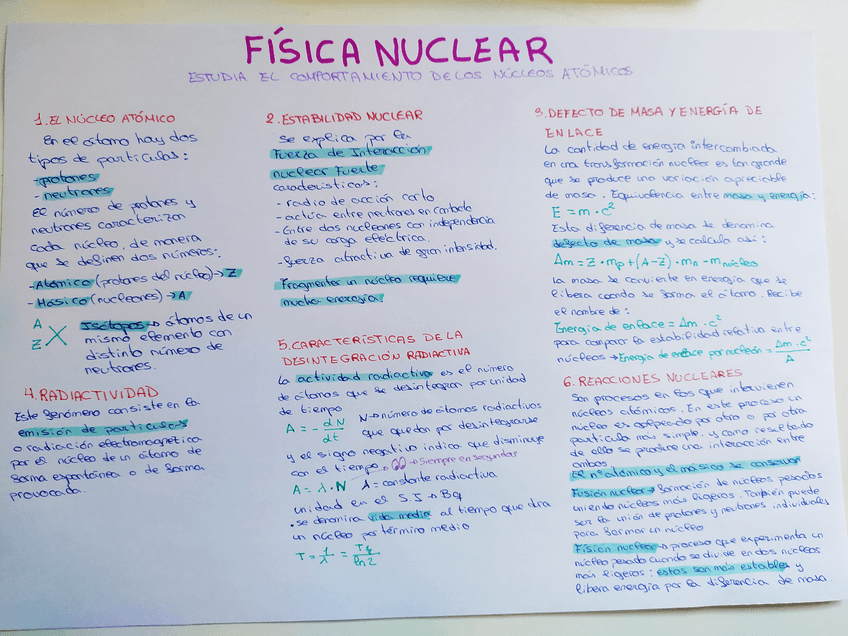 FÍSICA NUCLEAR
ESTUDIA EL COMPORTAMIENTO DE LOS NÚCLEOS ATÓMICOS
1. EL NÚCLEO ATÓMICO
En el átomo hay dos
tipos de partículas:
- protones
- neutrones
El número de protones y
neutrones caracterizan
cada núcleo, de manera
que se definen dos números:
- Atómico (protones del núcleo) → Z
- Másico (nucleones) → A
A
Z X
Isótopos → átomos de un
mismo elemento con
distinto número de
neutrones.
4. RADIACTIVIDAD
Este fenómeno consiste en la
emisión de partículas
o radiación electromagnética
por el núcleo de un átomo de
forma espontánea o de forma
provocada.
2. ESTABILIDAD NUCLEAR
Se explica por la
Fuerza de Interacción
nuclear Fuerte
características:
- radio de acción corto
- actúa entre neutrones en contacto
- Entre dos nucleones con independencia
de su carga eléctrica.
- fuerza atractiva de gran intensidad.
Fragmentar un núcleo requiere
mucha energía
5. CARACTERÍSTICAS DE LA
DESINTEGRACIÓN RADIACTIVA
La actividad radiactiva es el número
de átomos que se desintegran por unidad
de tiempo
A = - dN/dt N → número de átomos radiactivos
que quedan por desintegrarse
y el signo negativo indica que disminuye
con el tiempo → Siempre en segundos
A = λ · N λ = constante radiactiva
unidad en el S.I → Bq
· se denomina vida media al tiempo que dura
un núcleo por término medio
T = 1/λ = T½/ln 2
3. DEFECTO DE MASA Y ENERGÍA DE
ENLACE
La cantidad de energía intercambiada
en una transformación nuclear es tan grande
que se produce una variación apreciable
de masa. Equivalencia entre masa y energía:
E = m · c²
Esta diferencia de masa se denomina
defecto de masa y se calcula así:
Δm = Z · mp + (A-Z) · mn - mnúcleo
la masa se convierte en energía que se
libera cuando se forma el átomo. Recibe
el nombre de:
Energía de enlace = Δm · c²
para comparar la estabilidad relativa entre
núcleos → Energía de enlace por nucleón = Δm · c²/A
6. REACCIONES NUCLEARES
Son procesos en los que intervienen
núcleos atómicos. En este proceso un
núcleo es golpeado por otro o por otra
partícula más simple, y como resultado
de ello se produce una interacción entre
ambos
El nº atómico y el másico se conservan
Fusión nuclear → formación de núcleos pesados
uniendo núcleos más ligeros. También puede
ser la unión de protones y neutrones individuales
para formar un núcleo
Fisión nuclear → proceso que experimenta un
núcleo pesado cuando se divide en dos núcleos
más ligeros: estos son más estables y
libera energía por la diferencia de masa.